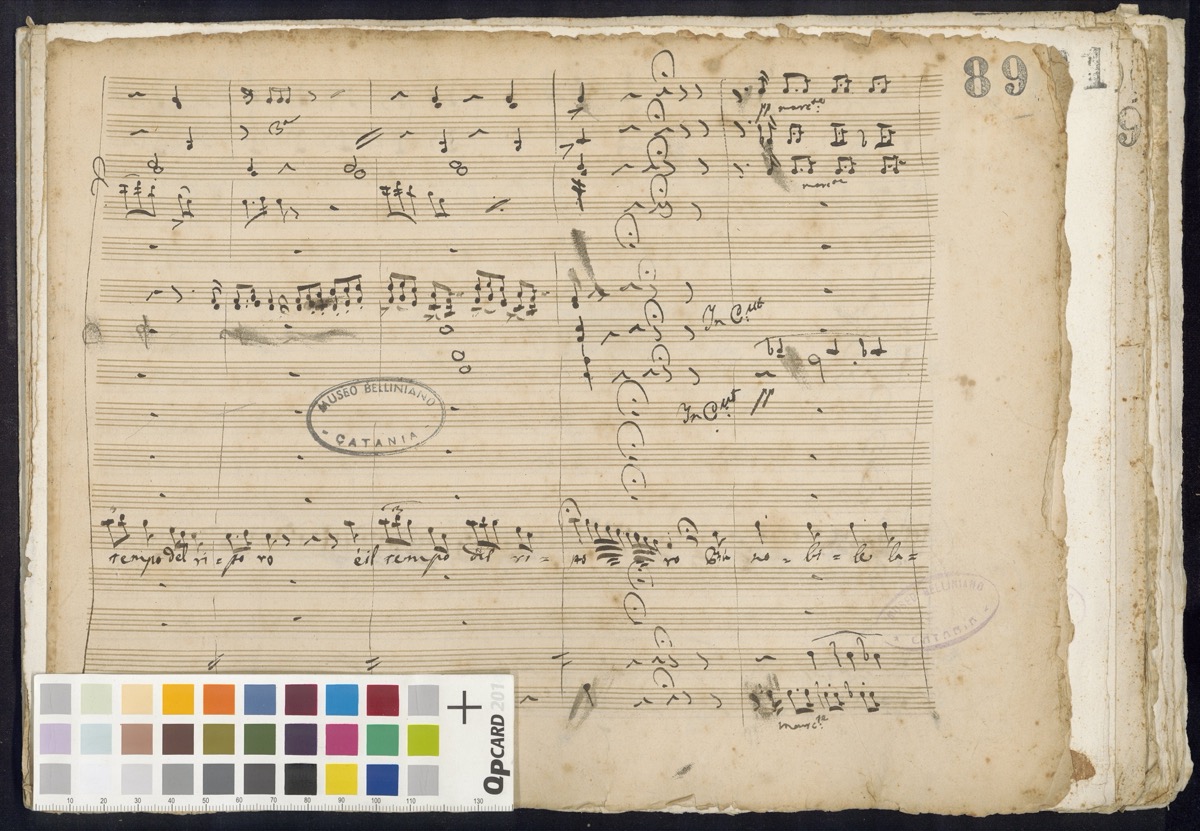 89
1
9
8va
marc.to
marc.to
In C.ut
MUSEO BELLINIANO
CATANIA
In C.ut
tempo del ri = so ro è il tempo del ri = so ro no = bi = le la =
MUSEO BELLINIANO
CATANIA
marc.to
QPCARD 201
10 20 30 40 50 60 70 80 90 100 110 130